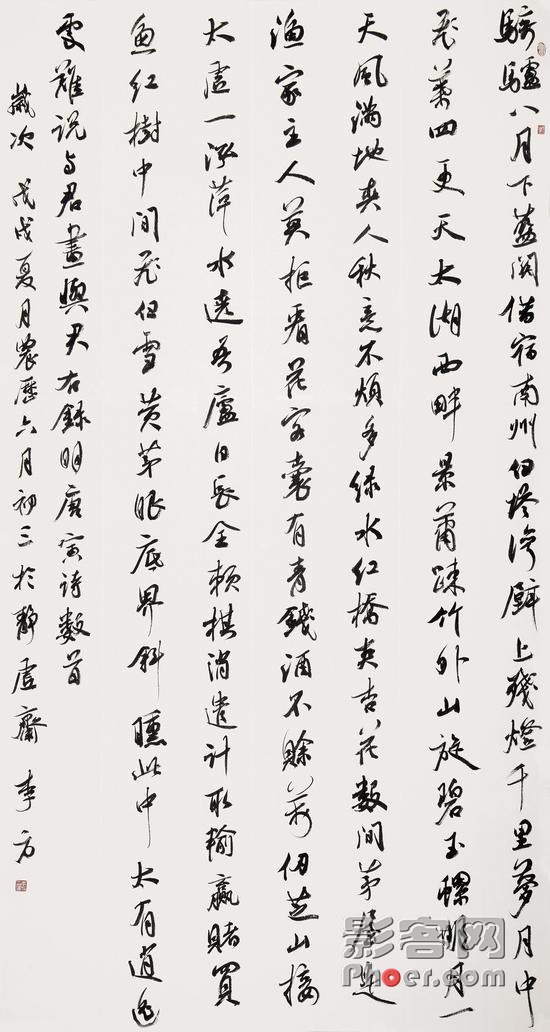 騎驢八月下藍關借宿南州白塔灣壁上殘燈千里夢月中
飛葉四更天太湖西畔景蕭疎竹外山旋碧玉螺明月一
天風滿地爽人秋意不煩多綠水紅橋夾杏花數間茅屋是
漁家主人莫拒看花客囊有青錢酒不賒萬仞芝山接
太虛一泓萍水遶吾廬日長全賴棋消遣計取輸贏賭買
魚紅樹中間飛白雪黃茅眼底界斜曛此中太有逍遙
處難說与君畫與君右錄明唐寅詩數首
歲次戊戌夏月農歷六月初三於靜虛齋李方
影客网
Phoer.com